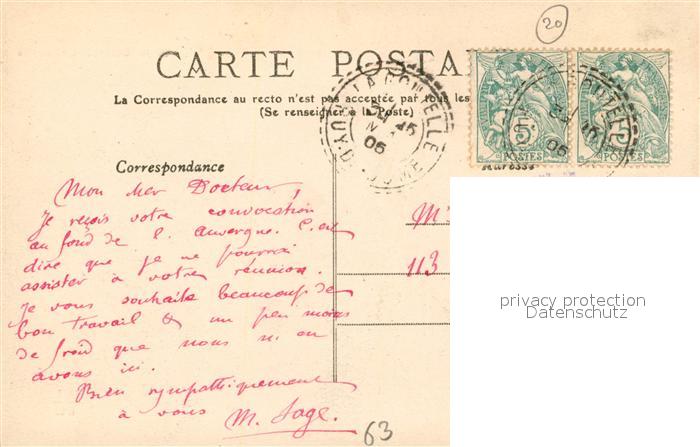 20
CARTE POSTA
La Correspondance au recto n'est pas acceptée par tous les
(Se renseigner à la Poste)
LA BOURBOULE
PUY-DE-DOME
05
5
POSTES
5
POSTES
Correspondance
Adresse
Mon cher Docteur,
Je reçois votre convocation
au fond de l'Auvergne. C'est
dire que je ne pourrai
assister à votre réunion.
Je vous souhaite beaucoup de
bon travail & un peu moins
de froid que nous n'en
avons ici.
Bien sympathiquement
à vous
M. Sage.
M
113
63
privacy protection
Datenschutz